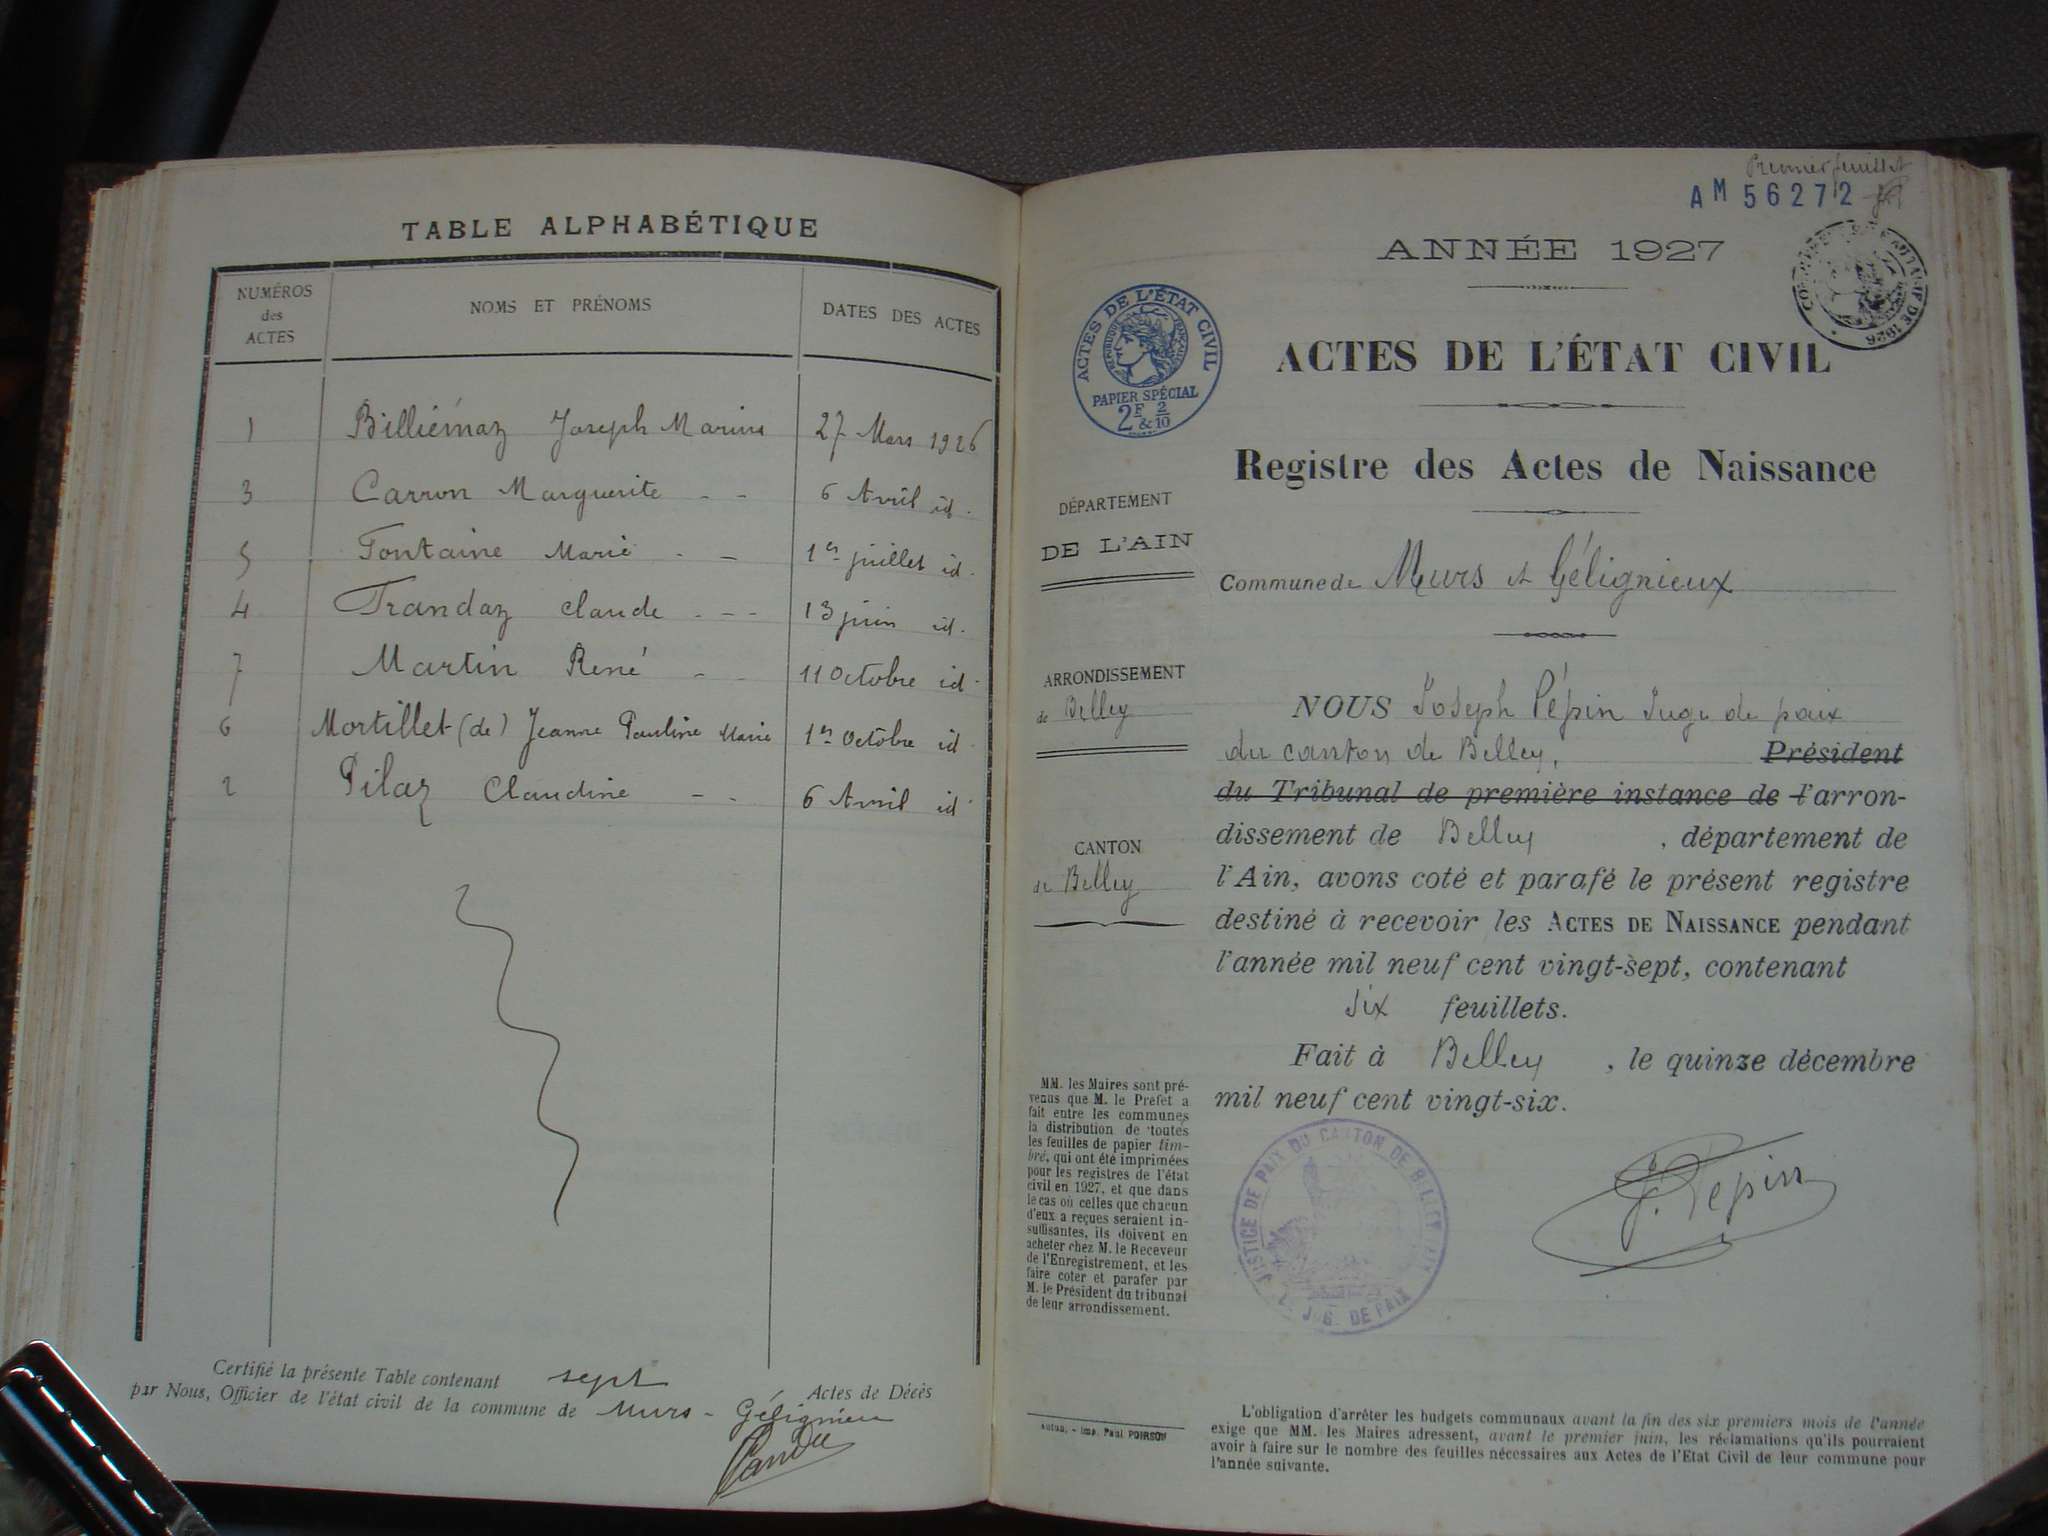 TABLE ALPHABÉTIQUE
NUMÉROS des ACTES NOMS ET PRÉNOMS DATES DES ACTES
1 Billiémaz Joseph Marius 27 Mars 1926
3 Carron Marguerite - - 6 Avril id.
5 Fontaine Marie - - 1er juillet id.
4 Trandaz Claude - - - 13 juin id.
7 Martin René - - 11 Octobre id.
6 Mortillet (de) Jeanne Pauline Marie 1er Octobre id.
2 Pilaz Claudine - - 6 Avril id.
Certifié la présente Table contenant sept Actes de Décès
par Nous, Officier de l'état civil de la commune de Murs - Gélignieu
Premier feuillet
AM 56272
ANNÉE 1927
ACTES DE L'ÉTAT CIVIL
RÉPUBLIQUE FRANÇAISE
PAPIER SPÉCIAL
2F & 2/10
ACTES DE L'ÉTAT CIVIL
Registre des Actes de Naissance
DÉPARTEMENT
DE L'AIN
Commune de Murs et Gélignieux
ARRONDISSEMENT
de Belley
CANTON
de Belley
NOUS Joseph Pépin Juge de paix
du canton de Belley, Président
du Tribunal de première instance de l'arron-
dissement de Belley, département de
l'Ain, avons coté et parafé le présent registre
destiné à recevoir les ACTES DE NAISSANCE pendant
l'année mil neuf cent vingt-sept, contenant
six feuillets.
Fait à Belley, le quinze décembre
mil neuf cent vingt-six.
J. Pépin
JUSTICE DE PAIX DU CANTON DE BELLEY AIN
JUG. DE PAIX
MM. les Maires sont pré-
venus que M. le Préfet a
fait entre les communes
la distribution de toutes
les feuilles de papier tim-
bré, qui ont été imprimées
pour les registres de l'état
civil en 1927, et que dans
le cas où celles que chacun
d'eux a reçues seraient in-
suffisantes, ils doivent en
acheter chez M. le Receveur
de l'Enregistrement, et les
faire coter et parafer par
M. le Président du tribunal
de leur arrondissement.
Autun. - Imp. Paul POIRSON
L'obligation d'arrêter les budgets communaux avant la fin des six premiers mois de l'année
exige que MM. les Maires adressent, avant le premier juin, les réclamations qu'ils pourraient
avoir à faire sur le nombre des feuilles nécessaires aux Actes de l'Etat Civil de leur commune pour
l'année suivante.